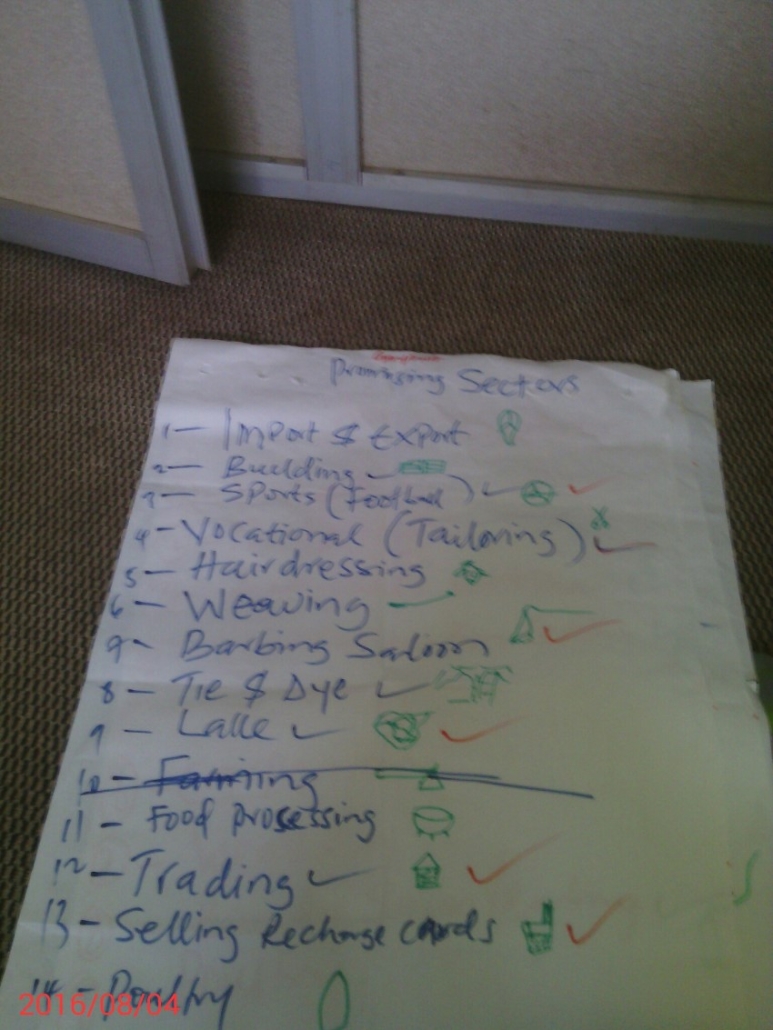 Promising Sectors
1- Import & Export
2- Building
3- Sports (Football)
4- Vocational (Tailoring)
5- Hairdressing
6- Weaving
9- Barbing Saloon
8- Tie & Dye
9- Lalle
10- Farming
11- Food processing
12- Trading
13- Selling Recharge cards
14- Poultry
2016/08/04